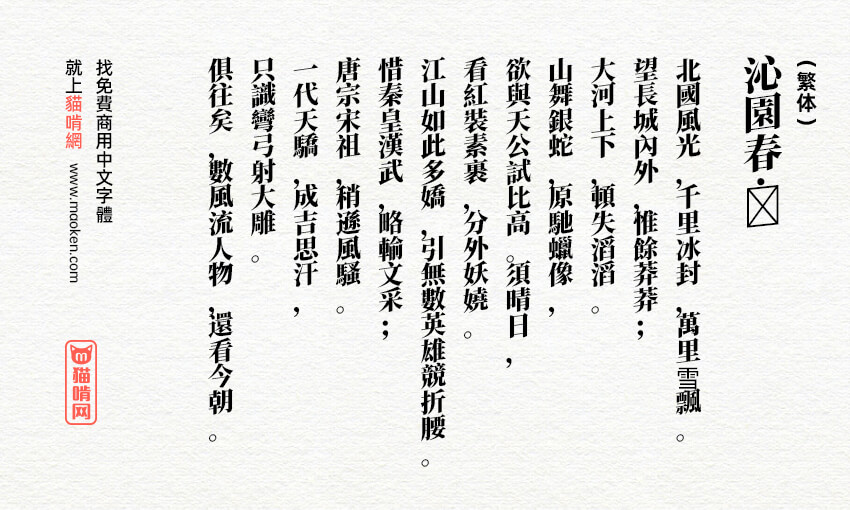 （繁体）
沁園春·
北國風光，千里冰封，萬里雪飄。
望長城內外，惟餘莽莽；
大河上下，頓失滔滔。
山舞銀蛇，原馳蠟像，
欲與天公試比高。須晴日，
看紅裝素裹，分外妖嬈。
江山如此多嬌，引無數英雄競折腰。
惜秦皇漢武，略輸文采；
唐宗宋祖，稍遜風騷。
一代天驕，成吉思汗，
只識彎弓射大雕。
俱往矣，數風流人物，還看今朝。
找免費商用中文字體
就上貓啃網 www.maoken.com
貓啃网